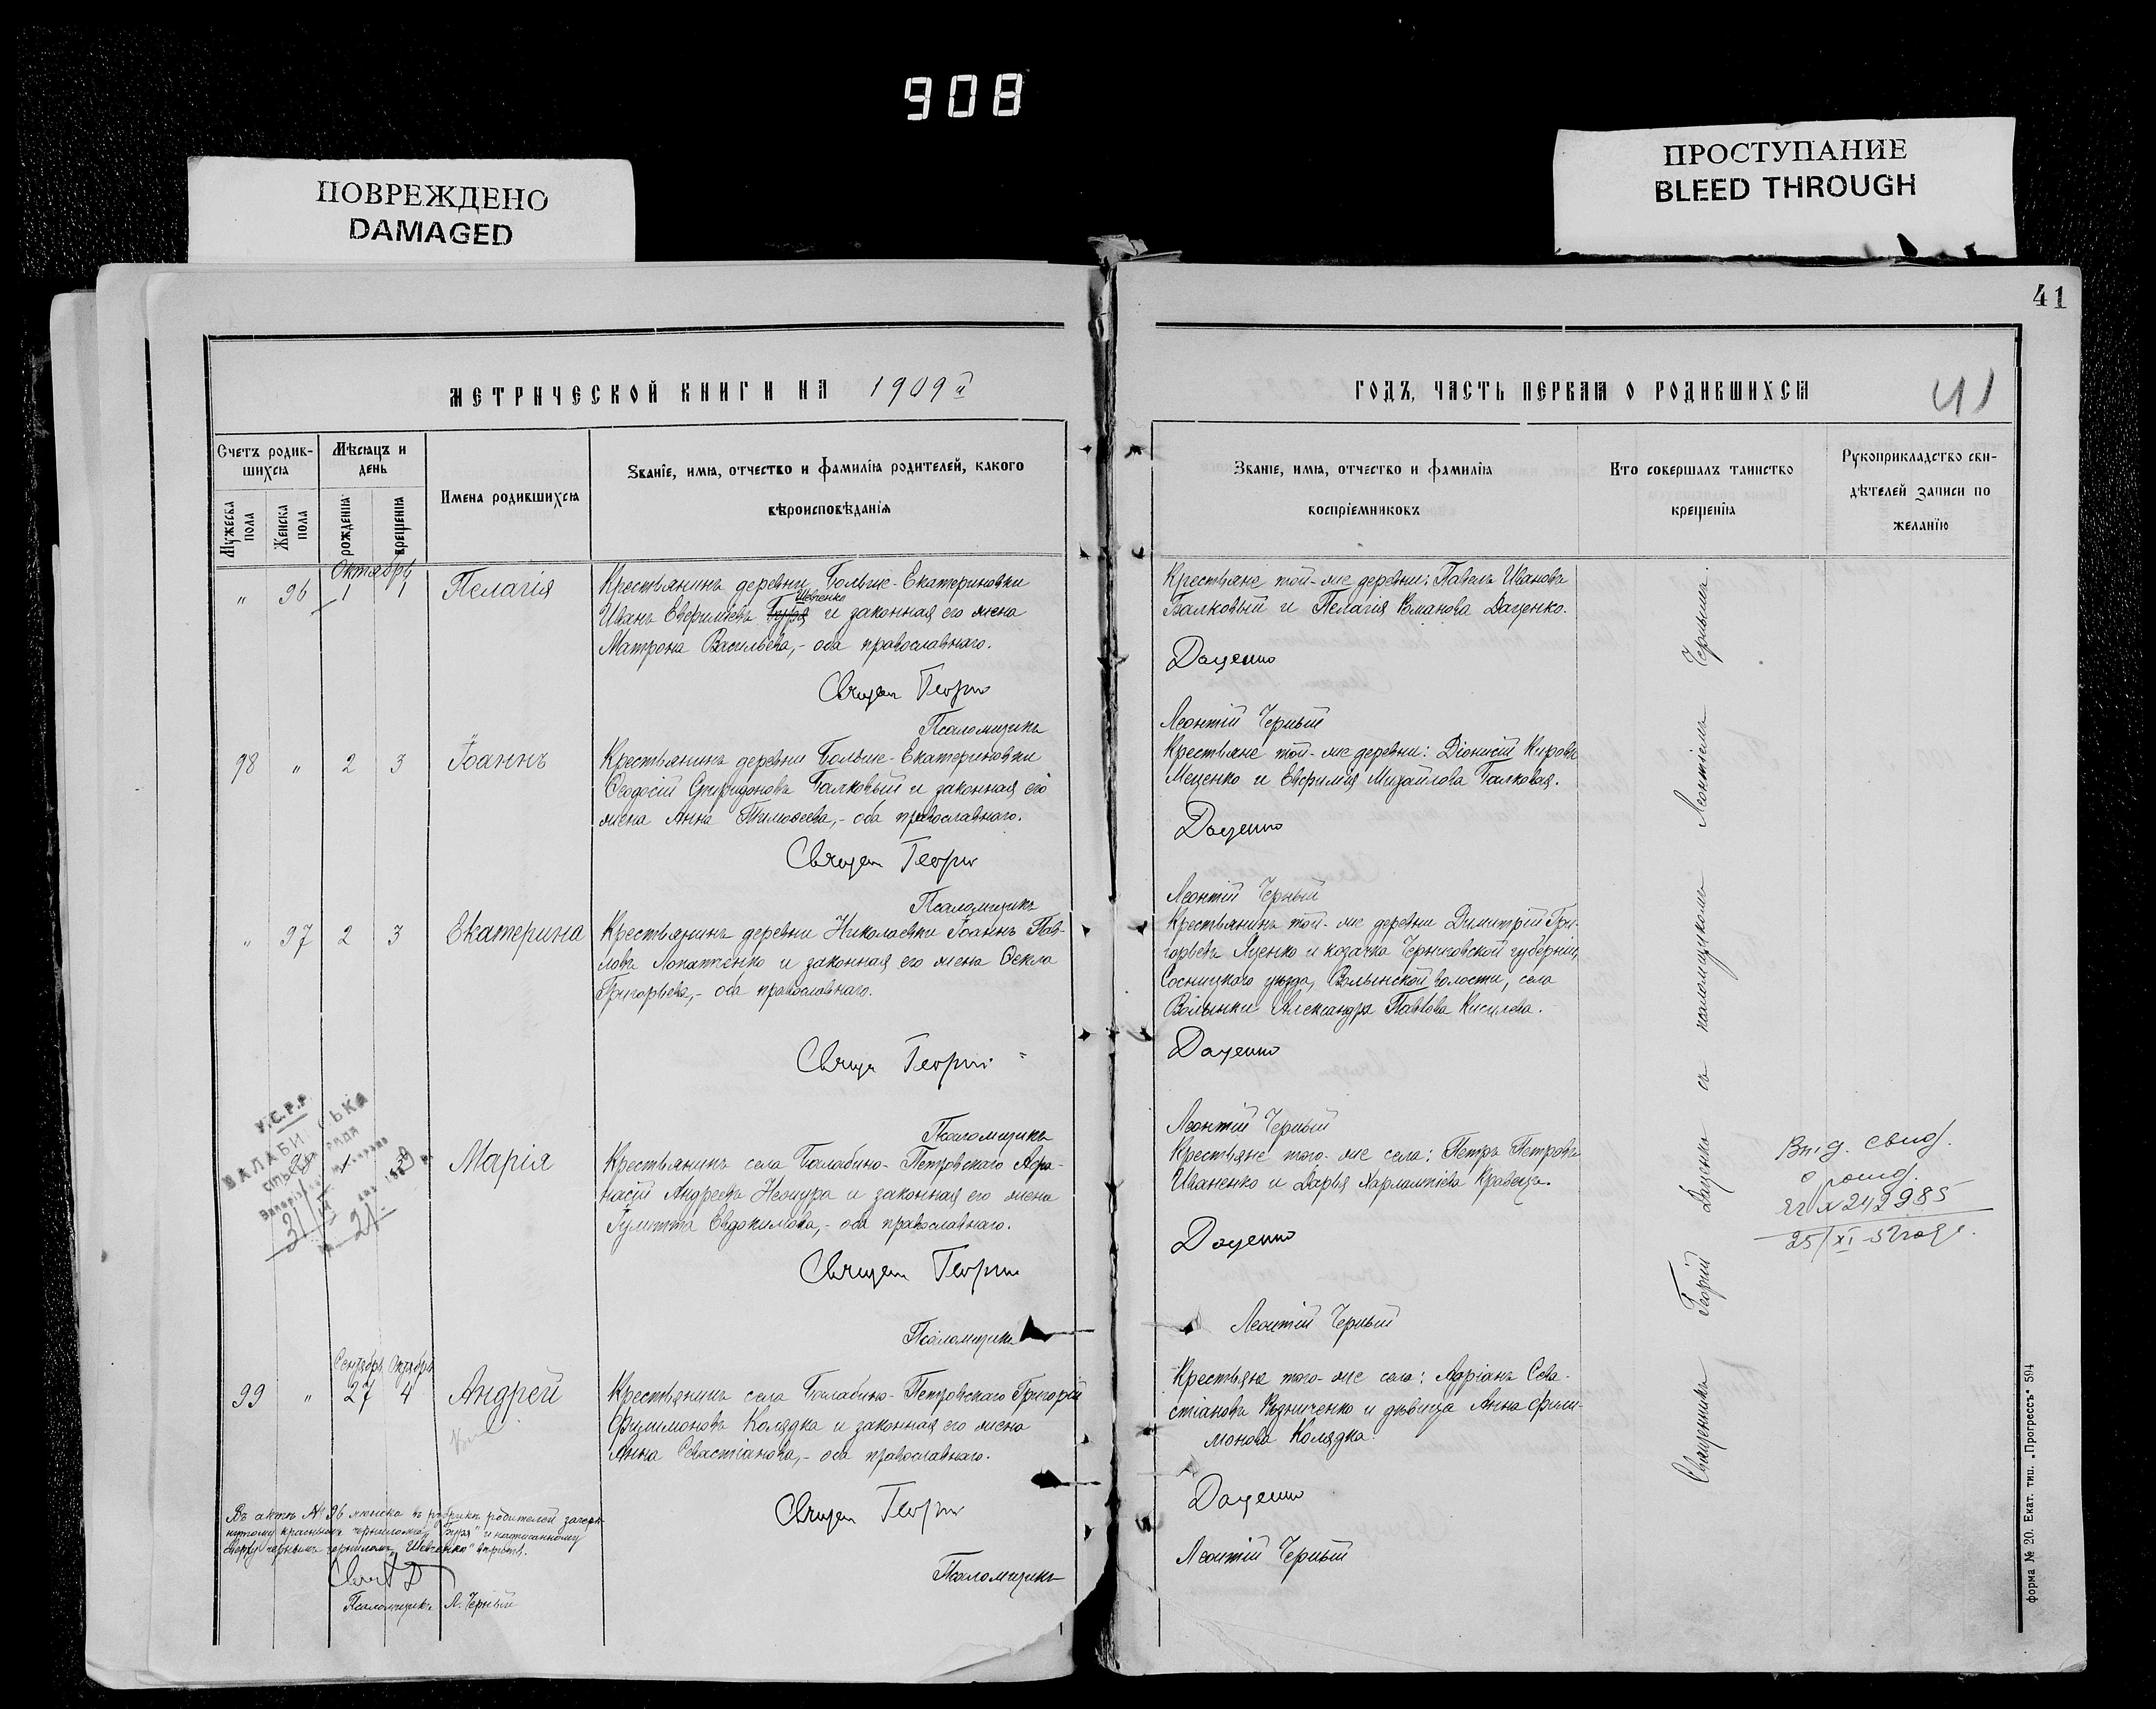 908
ПОВРЕЖДЕНО
DAMAGED
ПРОСТУПАНИЕ
BLEED THROUGH
41
МЕТРИЧЕСКОЙ КНИГИ НА 1909 й
ГОДЪ, ЧАСТЬ ПЕРВАЯ О РОДИВШИХСЯ
41
Счетъ родив-
шихся
Мужеска
пола
Женска
пола
Мѣсяцъ и
день
рожденія
крещенія
Имена родившихся
Званіе, имя, отчество и фамилія родителей, какого
вѣроисповѣданія
Званіе, имя, отчество и фамилія
воспріемниковъ
Кто совершалъ таинство
крещенія
Рукоприкладство сви-
дѣтелей записи по
желанію
Октябрь
" 96 1 1 Пелагія
Крестьянинъ деревни Больше-Екатериновки
Шевченко
Иванъ Евфиміевъ Буря и законная его жена
Матрона Васильева,- оба православнаго.
Священ Георгій
Псаломщикъ
Крестьяне той-же деревни: Павелъ Ивановъ
Балковый и Пелагія Романова Даценко.
Даценко
Леонтій Черный
98 " 2 3 Іоаннъ
Крестьянинъ деревни Больше-Екатериновки
Ѳеодосій Спиридоновъ Балковый и законная его
жена Анна Тимоѳеева,- оба православнаго.
Священ Георгій
Псаломщикъ
Крестьяне той-же деревни: Діонисій Кировъ
Меценко и Евфимія Михайлова Балковая.
Даценко
Леонтій Черный
" 97 2 3 Екатерина
Крестьянинъ деревни Николаевки Іоаннъ Пав-
ловъ Лопатченко и законная его жена Ѳекла
Григорьева,- оба православнаго.
Священ Георгій
Псаломщикъ
Крестьянинъ той-же деревни Димитрій Гри-
горьевъ Яценко и козачка Черниговской губерніи,
Сосницкаго уѣзда, Волынской волости, села
Волынки Александра Павлова Кисилева.
Даценко
Леонтій Черный
У.С.Р.Р.
Марія
Крестьянинъ села Балабино-Петровскаго Афа-
насій Андреевъ Нехура и законная его жена
Іулитта Евдокимова,- оба православнаго.
Священ Георгій
Псаломщикъ
Крестьяне того-же села: Петръ Петровъ
Иваненко и Дарья Харлампіева Кравецъ.
Даценко
Леонтій Черный
Выд. свид.
о рожд.
242985
Сентябрь Октябрь
99 " 27 4 Андрей
Крестьянинъ села Балабино-Петровскаго Григорій
Филимоновъ Колядка и законная его жена
Анна Севастіанова,- оба православнаго.
Священ Георгій
Псаломщикъ
Крестьяне того-же села: Адріанъ Сева-
стіановъ Рѣзниченко и дѣвица Анна Фили-
монова Колядка.
Даценко
Леонтій Черный
Священникъ Георгій Даценко съ псаломщикомъ Леонтіемъ Чернымъ.
Въ актѣ № 96 женска въ рубрикѣ родителей зачерк-
нутому красными чернилами „Буря" и написанному
сверху черными чернилами „Шевченко" вѣрить.
Псаломщикъ Л. Черный
форма № 20. Екат. тип. „Прогрессъ" 594